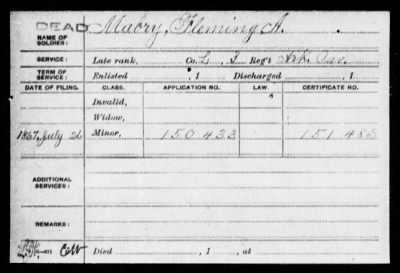 DEAD
NAME OF SOLDIER: Mabry, Fleming A.
SERVICE: Late rank, Co. L, 3 Reg't Ark. Cav.
TERM OF SERVICE: Enlisted , 1 Discharged , 1
DATE OF FILING. CLASS. APPLICATION NO. LAW. CERTIFICATE NO.
Invalid,
Widow,
1867, July 26 Minor, 150 433 151 488
ADDITIONAL SERVICES:
REMARKS:
Died , 1 , at